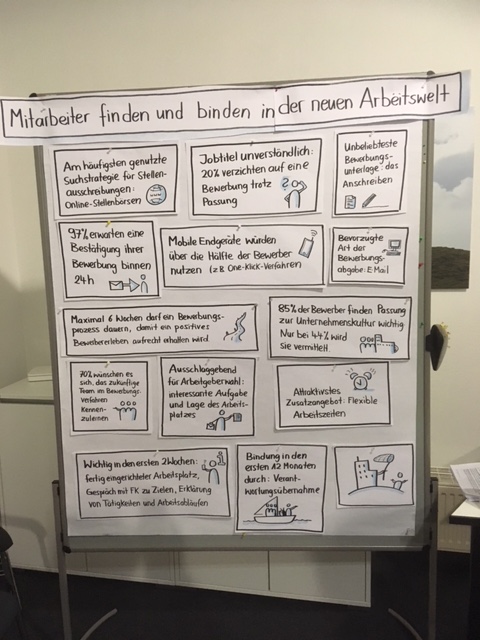 Mitarbeiter finden und binden in der neuen Arbeitswelt
Am häufigsten genutzte
Suchstrategie für Stellen-
ausschreibungen:
Online-Stellenbörsen
Jobtitel unverständlich:
20% verzichten auf eine
Bewerbung trotz
Passung
Unbeliebteste
Bewerbungs-
unterlage: das
Anschreiben
97% erwarten eine
Bestätigung ihrer
Bewerbung binnen
24h
Mobile Endgeräte würden
über die Hälfte der Bewerber
nutzen (z.B. One-Klick-Verfahren
Bevorzugte
Art der
Bewerbungs-
abgabe: E-Mail
Maximal 6 Wochen darf ein Bewerbungs-
prozess dauern, damit ein positives
Bewerbererleben aufrecht erhalten wird.
85% der Bewerber finden Passung
zur Unternehmenskultur wichtig.
Nur bei 44% wird
sie vermittelt.
70% wünschen es
sich, das zukünftige
Team im Bewerbungs-
verfahren
kennen-
zulernen
Ausschlaggebend
für Arbeitgeberwahl:
interessante Aufgabe
und Lage des Arbeits-
platzes
Attraktivstes
Zusatzangebot: Flexible
Arbeitszeiten
Wichtig in den ersten 2 Wochen:
fertig eingerichteter Arbeitsplatz,
Gespräch mit FK zu Zielen, Erklärung
von Tätigkeiten und Arbeitsabläufen
Bindung in den
ersten 12 Monaten
durch: Verant-
wortungsübernahme